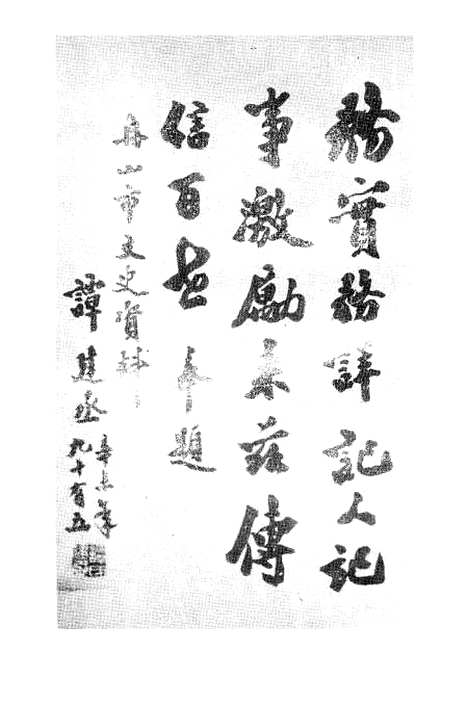 務實務詳記人記
事激勵來茲傳
信百世 奉題
舟山市文史資料
譚建丞 辛未年
九十有五